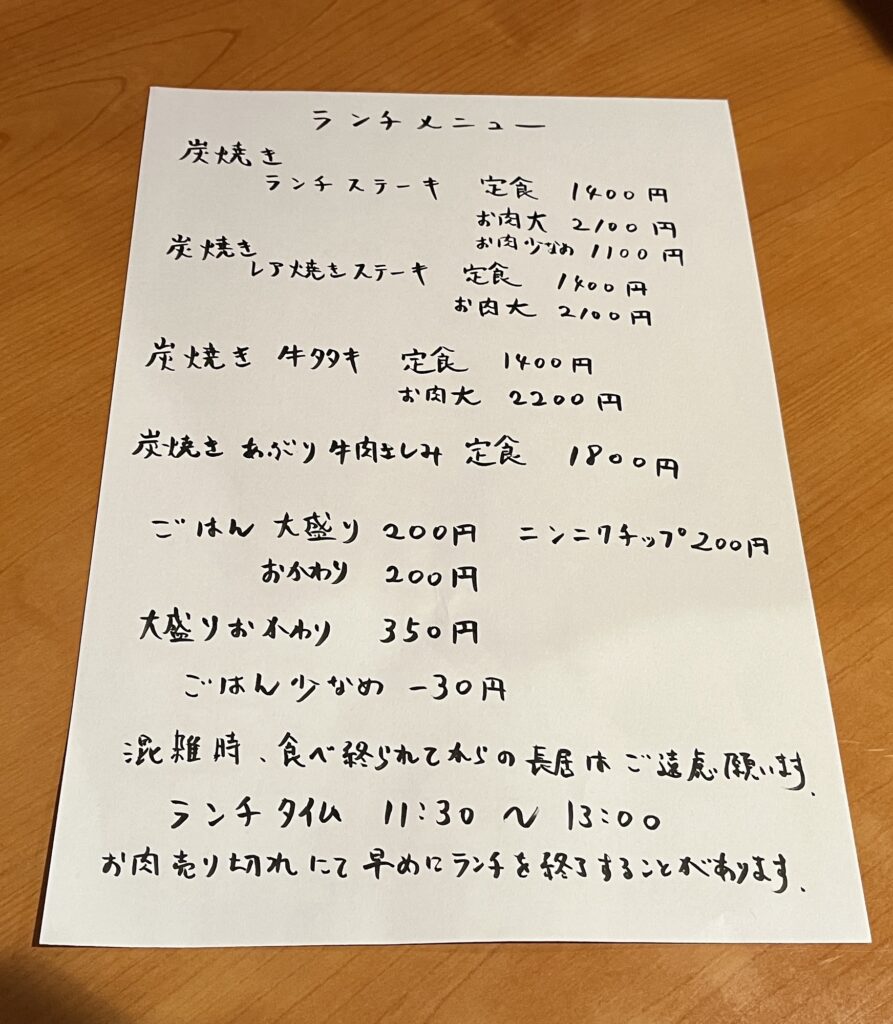 ランチメニュー
炭焼き
ランチステーキ 定食 1400円
お肉大 2100円
お肉少なめ 1100円
炭焼き
レア焼きステーキ 定食 1400円
お肉大 2100円
炭焼き 牛タタキ 定食 1400円
お肉大 2200円
炭焼き あぶり牛肉さしみ 定食 1800円
ごはん 大盛り 200円 ニンニクチップ200円
おかわり 200円
大盛りおかわり 350円
ごはん少なめ -30円
混雑時、食べ終られてからの長居はご遠慮願います.
ランチタイム 11:30 ～ 13:00
お肉売り切れにて早めにランチを終了することがあります.